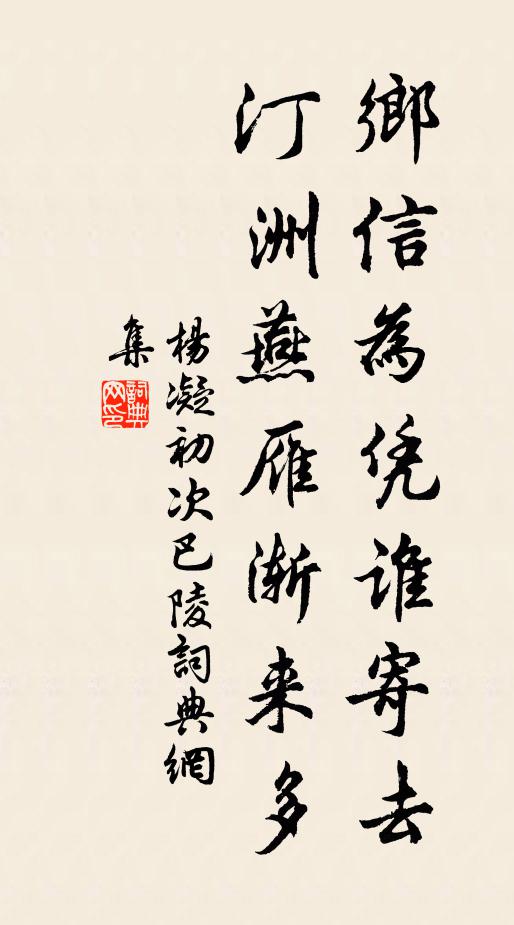 鄉信為凭誰寄去
汀洲燕雁漸来多
楊凝初次巴陵詞典網
集
詞典
网印